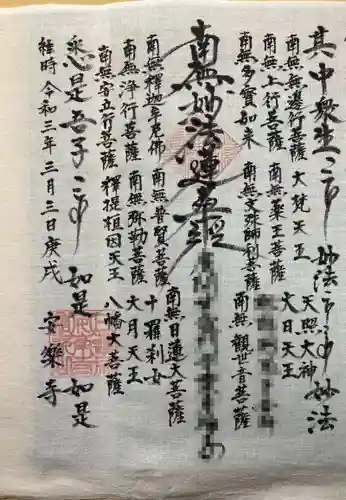 其中衆生 妙法 妙法
南無無邊行菩薩 大梵天王 天照大神
南無上行菩薩 南無藥王菩薩 大日天王
南無多寶如来 南無文殊師利菩薩 南無觀世音菩薩
南無妙法蓮華經
南無釋迦牟尼佛 南無普賢菩薩 南無日蓮大菩薩
南無浄行菩薩 南無弥勒菩薩 十羅刹女
南無安立行菩薩 釋提桓因天王 大月天王
八幡大菩薩
悉是吾子 如是 如是
維時令和三年三月三日庚戌 安樂寺